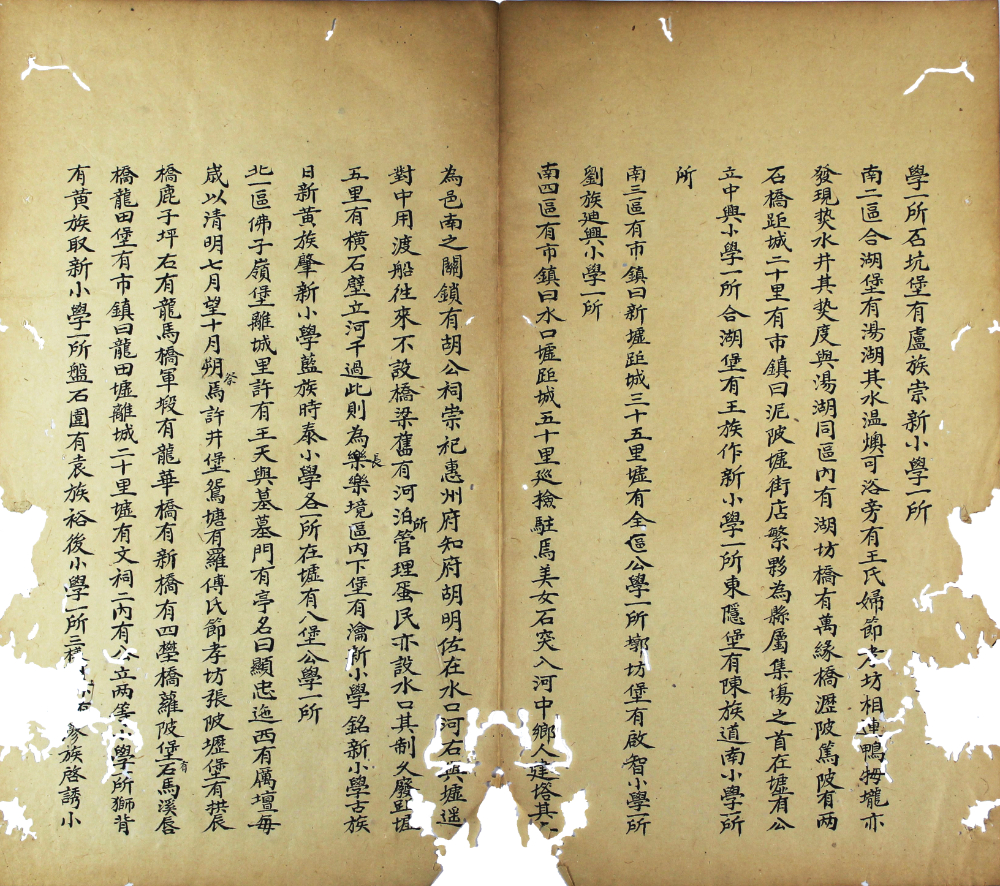 學一所石坑堡有盧族崇新小學一所
南二區合湖堡有湯湖其水温燠可浴旁有王氏婦節孝坊相連鴨𤙖壠亦
發現𤍠水井其𤍠度與湯湖同區內有湖坊橋有萬緣橋瀝陂篤陂有两
石橋距城二十里有市鎮曰泥陂墟街店繁夥為縣屬集場之首在墟有公
立中興小學一所合湖堡有王族作新小學一所東隱堡有陳族道南小學一所
所
南三區有市鎮曰新墟距城三十五里墟有全區公學一所墩坊堡有啟智小學一所
劉族廸興小學一所
南四區有市鎮曰水口墟距城五十里廵檢駐焉美女石突入河中鄉人建塔其
為邑南之關鎖有胡公祠崇祀惠州府知府胡明佐在水口河右與墟遥
對中用渡船徃來不設橋梁舊有河泊所管理蛋民亦設水口其制久廢
五里有橫石壁立河干過此則為長樂樂境區內下堡有瀹新小學銘新小學古族
日新黃族肇新小學藍族時泰小學各一所在墟有八堡公學一所
北一區佛子嶺堡離城里許有王天與墓墓門有亭名曰顯忠迤西有厲壇每
歲以清明七月望十月朔祭焉許井堡鴛塘有羅傅氏節孝坊張陂壢堡有拱辰
橋鹿子坪右有龍馬橋軍塅有龍華橋有新橋有四㙡橋蘿陂堡有石馬溪唇
橋龍田堡有市鎮曰龍田墟離城二十里墟有文祠二內有公立两等小學一所獅背
有黃族取新小學一所盤石圍有袁族裕後小學一所三 族啓誘小